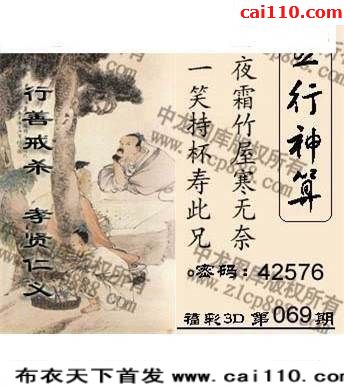 cai110.com
五行神算
夜霜竹屋寒无奈
一笑持杯寿此兄
行善戒杀 孝贤仁义
密码:42576
福彩3D 第069期
中龙图库版权所有
www.zlcp888.com
布衣天下首发 www.cai110.com